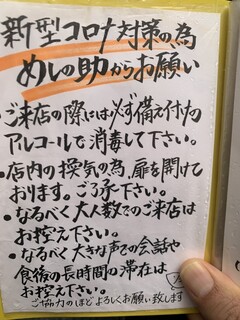 新型コロナ対策の為
めしの助からお願い
・ご来店の際には必ず備え付けの
アルコールで消毒して下さい。
・店内の換気の為、扉を開けて
おります。ご了承下さい。
・なるべく大人数でのご来店は
お控え下さい。
・なるべく大きな声での会話や
食後の長時間の滞在は
お控え下さい。
ご協力のほどよろしくお願い致します